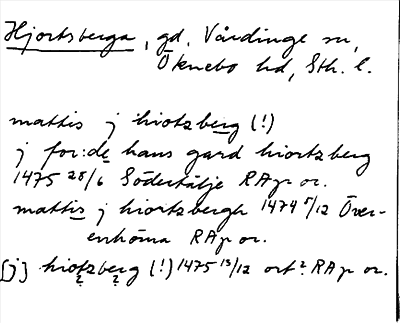 Hjortsberga, gd. Vårdinge sn,
Öknebo hd, Sth. l.
mattis j hiotzberg (!)
j for:de hans gard hiortzberg
1475 28/6 Södertälje RAp or.
mattis j hiortzbergh 1474 5/12 Över-
enhörna RAp or.
[j] hiotzberg (!) 1475 13/12 ort? RAp or.